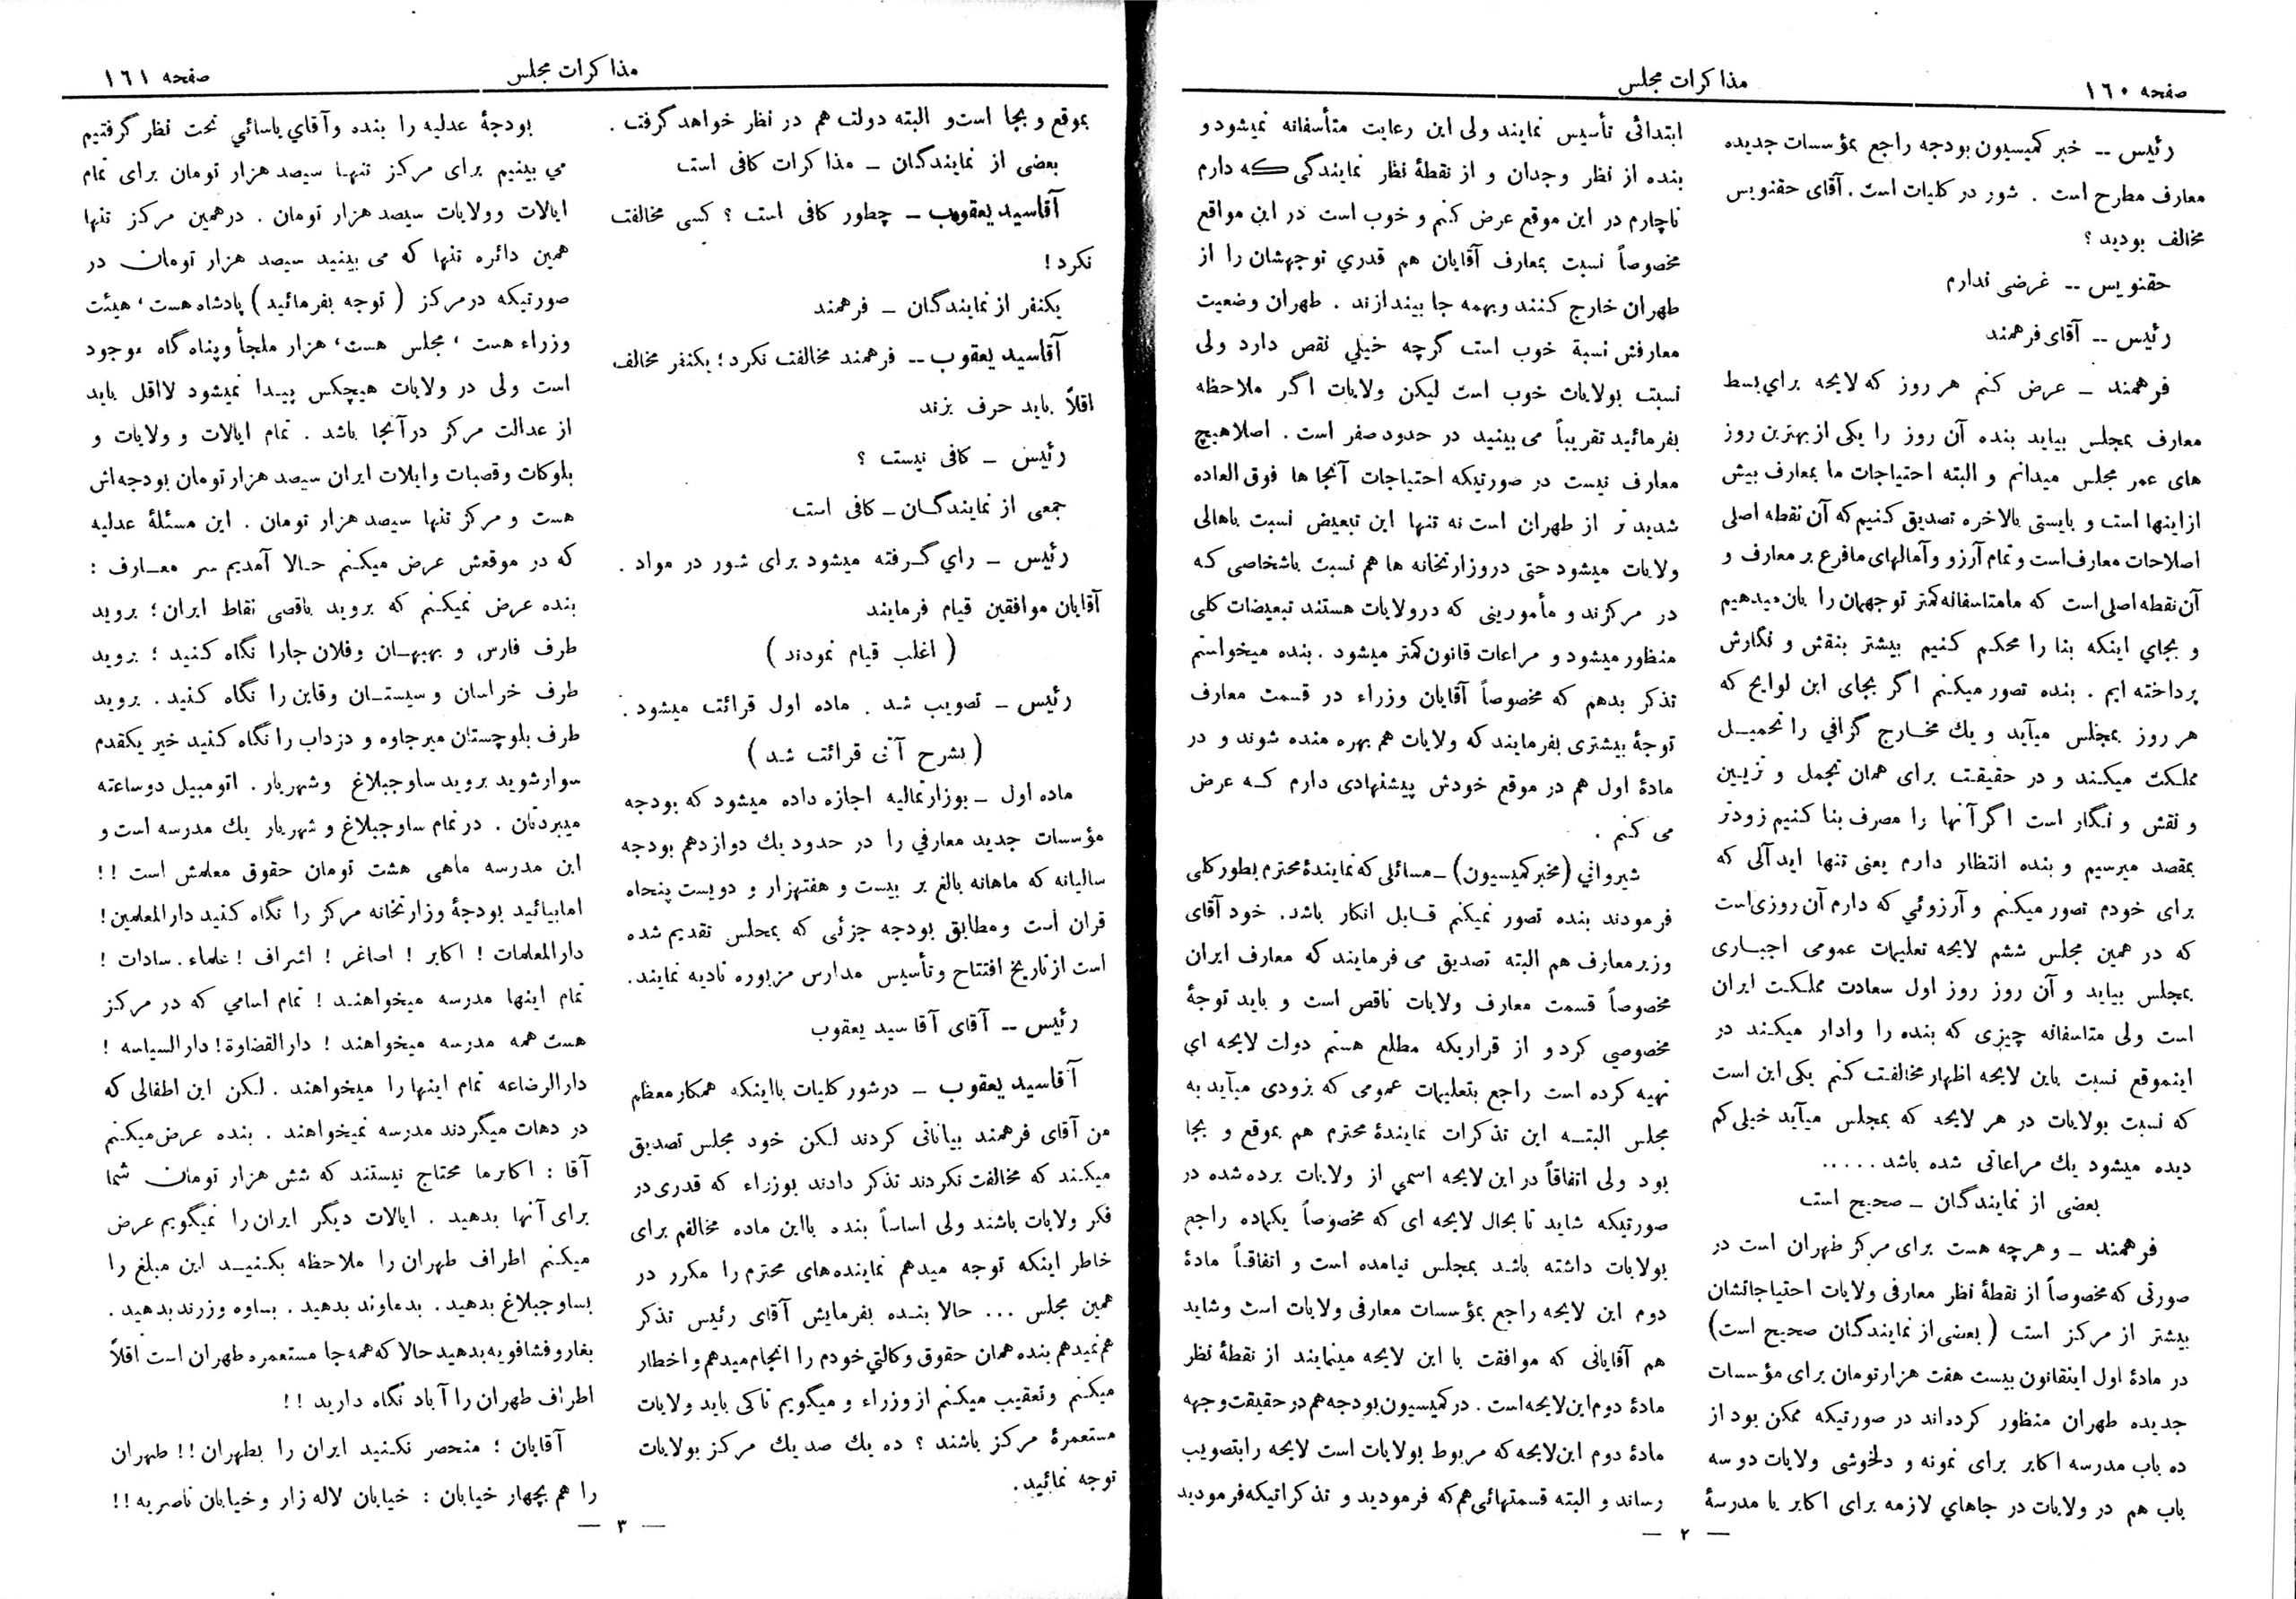 صفحه ١٦٠
مذاکرات مجلس
رئیس -- خبر کمیسیون بودجه راجع بمؤسسات جدیده
معارف مطرح است . شور در کلیات است . آقای حقنویس
مخالف بودید ؟
حقنویس -- غرضی ندارم
رئیس -- آقای فرهمند
فرهمند - عرض کنم هر روز که لایحه برای بسط
معارف بمجلس بیاید بنده آن روز را یکی از بهترین روز
های عمر مجلس میدانم و البته احتیاجات ما بمعارف بیش
از اینها است و بایستی بالاخره تصدیق کنیم که آن نقطه اصلی
اصلاحات معارف است و تمام آرزو و آمالهای ما فرع بر معارف و
آن نقطه اصلی است که ما متاسفانه کمتر توجهمان را بان میدهیم
و بجای اینکه بنا را محکم کنیم بیشتر بنقش و نگارش
پرداخته ایم . بنده تصور میکنم اگر بجای این لوایح که
هر روز بمجلس میآید و یك مخارج گزافی را تحمیل
مملکت میکند و در حقیقت برای همان تجمل و تزیین
و نقش و نگار است اگر آنها را مصرف بنا کنیم زودتر
بمقصد میرسیم و بنده انتظار دارم یعنی تنها اید آلی که
برای خودم تصور میکنم و آرزوئی که دارم آن روزی است
که در همین مجلس ششم لایحه تعلیمات عمومی اجباری
بمجلس بیاید و آن روز روز اول سعادت مملکت ایران
است ولی متاسفانه چیزی که بنده را وادار میکند در
اینموقع نسبت باین لایحه اظهار مخالفت کنم یکی این است
که نسبت بولایات در هر لایحه که بمجلس میآید خیلی کم
دیده میشود یك مراعاتی شده باشد .....
بعضی از نمایندگان - صحیح است
فرهمند - و هرچه هست برای مرکز طهران است در
صورتی که مخصوصاً از نقطهٔ نظر معارفی ولایات احتیاجاتشان
بیشتر از مرکز است ( بعضی از نمایندگان صحیح است)
در مادهٔ اول اینقانون بیست هفت هزار تومان برای مؤسسات
جدیده طهران منظور کرده‌اند در صورتیکه ممکن بود از
ده باب مدرسه اکابر برای نمونه و دلخوشی ولایات دو سه
باب هم در ولایات در جاهای لازمه برای اکابر یا مدرسهٔ
ابتدائی تأسیس نمایند ولی این رعایت متأسفانه نمیشود و
بنده از نظر وجدان و از نقطهٔ نظر نمایندگی که دارم
ناچارم در این موقع عرض کنم و خوب است در این مواقع
مخصوصاً نسبت بمعارف آقایان هم قدری توجهشان را از
طهران خارج کنند و بهمه جا بیندازند . طهران وضعیت
معارفش نسبة خوب است گرچه خیلی نقص دارد ولی
نسبت بولایات خوب است لیکن ولایات اگر ملاحظه
بفرمائید تقریباً می بینید در حدود صفر است . اصلا هیچ
معارف نیست در صورتیکه احتیاجات آنجا ها فوق العاده
شدید تر از طهران است نه تنها این تبعیض نسبت باهالی
ولایات میشود حتی در وزارتخانه ها هم نسبت باشخاصی که
در مرکزند و مأمورینی که در ولایات هستند تبعیضات کلی
منظور میشود و مراعات قانون کمتر میشود . بنده میخواستم
تذکر بدهم که مخصوصاً آقایان وزراء در قسمت معارف
توجهٔ بیشتری بفرمایند که ولایات هم بهره مند‌ه شوند و در
مادهٔ اول هم در موقع خودش پیشنهادی دارم که عرض
می کنم .
شیروانی (مخبر کمیسیون) - مسائلی که نمایندهٔ محترم بطور کلی
فرمودند بنده تصور نمیکنم قابل انکار باشد. خود آقای
وزیر معارف هم البته تصدیق می فرمایند که معارف ایران
مخصوصاً قسمت معارف ولایات ناقص است و باید توجهٔ
مخصوصی کرد و از قراریکه مطلع هستم دولت لایحه ای
تهیه کرده است راجع بتعلیمات عمومی که بزودی میآید به
مجلس البته این تذکرات نمایندهٔ محترم هم بموقع و بجا
بود ولی اتفاقاً در این لایحه اسمی از ولایات برده شده در
صورتیکه شاید تا بحال لایحه ای که مخصوصاً یکماده راجع
بولایات داشته باشد بمجلس نیامده است و اتفاقاً مادهٔ
دوم این لایحه راجع بمؤسسات معارفی ولایات است و شاید
هم آقایانی که موافقت با این لایحه مینمایند از نقطهٔ نظر
مادهٔ دوم این لایحه است . در کمیسیون بودجه هم در حقیقت وجهه
مادهٔ دوم این لایحه که مربوط بولایات است لایحه را بتصویب
رساند و البته قسمتهائی هم که فرمودید و تذکراتیکه فرمودید
— ٢ —
صفحه ١٦١
مذاکرات مجلس
بموقع و بجا است و البته دولت هم در نظر خواهد گرفت .
بعضی از نمایندگان - مذاکرات کافی است
آقاسید یعقوب - چطور کافی است ؟ کسی مخالفت
نکرد !
یکنفر از نمایندگان - فرهمند
آقاسید یعقوب -- فرهمند مخالفت نکرد ؛ یکنفر مخالف
اقلاً باید حرف بزند
رئیس - کافی نیست ؟
جمعی از نمایندگان - کافی است
رئیس - رأی گرفته میشود برای شور در مواد .
آقایان موافقین قیام فرمایند
( اغلب قیام نمودند )
رئیس - تصویب شد . ماده اول قرائت میشود .
( بشرح آتی قرائت شد )
ماده اول - بوزارتمالیه اجازه داده میشود که بودجه
مؤسسات جدید معارفی را در حدود یك دوازدهم بودجه
سالیانه که ماهانه بالغ بر بیست و هفتهزار و دویست پنجاه
قران است و مطابق بودجه جزئی که بمجلس تقدیم شده
است از تاریخ افتتاح و تأسیس مدارس مزبوره تادیه نمایند.
رئیس -- آقای آقا سید یعقوب
آقاسید یعقوب - در شور کلیات با اینکه همکار معظم
من آقای فرهمند بیاناتی کردند لکن خود مجلس تصدیق
میکند که مخالفت نکردند تذکر دادند بوزراء که قدری در
فکر ولایات باشند ولی اساساً بنده با این ماده مخالفم برای
خاطر اینکه توجه میدهم نماینده‌های محترم را مکرر در
همین مجلس ... حالا بنده بفرمایش آقای رئیس تذکر
هم نمیدهم بنده همان حقوق وکالتی خودم را انجام میدهم و اخطار
میکنم و تعقیب میکنم از وزراء و میگویم تا کی باید ولایات
مستعمرهٔ مرکز باشند ؟ ده یك صد یك مرکز بولایات
توجه نمائید.
بودجهٔ عدلیه را بنده و آقای یاسائی تحت نظر گرفتیم
می بینیم برای مرکز تنها سیصد هزار تومان برای تمام
ایالات و ولایات سیصد هزار تومان . در همین مرکز تنها
همین دائره تنها که می بینید سیصد هزار تومان در
صورتیکه در مرکز ( توجه بفرمائید ) پادشاه هست ، هیئت
وزراء هست ، مجلس هست ، هزار ملجأ و پناه گاه موجود
است ولی در ولایات هیچکس پیدا نمیشود لااقل باید
از عدالت مرکز در آنجا باشد . تمام ایالات و ولایات و
بلوکات و قصبات و ایلات ایران سیصد هزار تومان بودجه‌اش
هست و مرکز تنها سیصد هزار تومان . این مسئلهٔ عدلیه
که در موقعش عرض میکنم حالا آمدیم سر معارف :
بنده عرض نمیکنم که بروید باقصی نقاط ایران ؛ بروید
طرف فارس و بهبهان و فلان جا را نگاه کنید ؛ بروید
طرف خراسان و سیستان و قاین را نگاه کنید . بروید
طرف بلوچستان میرجاوه و دزداب را نگاه کنید خیر یکقدم
سوار شوید بروید ساوجبلاغ و شهریار . اتومبیل دو ساعته
میبردتان . در تمام ساوجبلاغ و شهریار یك مدرسه است و
این مدرسه ماهی هشت تومان حقوق معلمش است !!
اما بیائید بودجهٔ وزارتخانه مرکز را نگاه کنید دارالمعلمین !
دارالمعلمات ! اکابر ! اصاغر ! اشراف ! علماء . سادات !
تمام اینها مدرسه میخواهند ! تمام اسامی که در مرکز
هست همه مدرسه میخواهند ! دارالقضاوة ! دارالسیاسه !
دارالرضاعه تمام اینها را میخواهند . لکن این اطفالی که
در دهات میگردند مدرسه نمیخواهند . بنده عرض میکنم
آقا : اکابر ما محتاج نیستند که شش هزار تومان شما
برای آنها بدهید . ایالات دیگر ایران را نمیگویم عرض
میکنم اطراف طهران را ملاحظه بکنید این مبلغ را
بساوجبلاغ بدهید. بدماوند بدهید . بساوه و زرند بدهید .
بغار و فشافویه بدهید حالا که همه جا مستعمره طهران است اقلاً
اطراف طهران را آباد نگاه دارید !!
آقایان ؛ منحصر نکنید ایران را بطهران !! طهران
را هم بچهار خیابان : خیابان لاله زار و خیابان ناصریه !!
— ٣ —